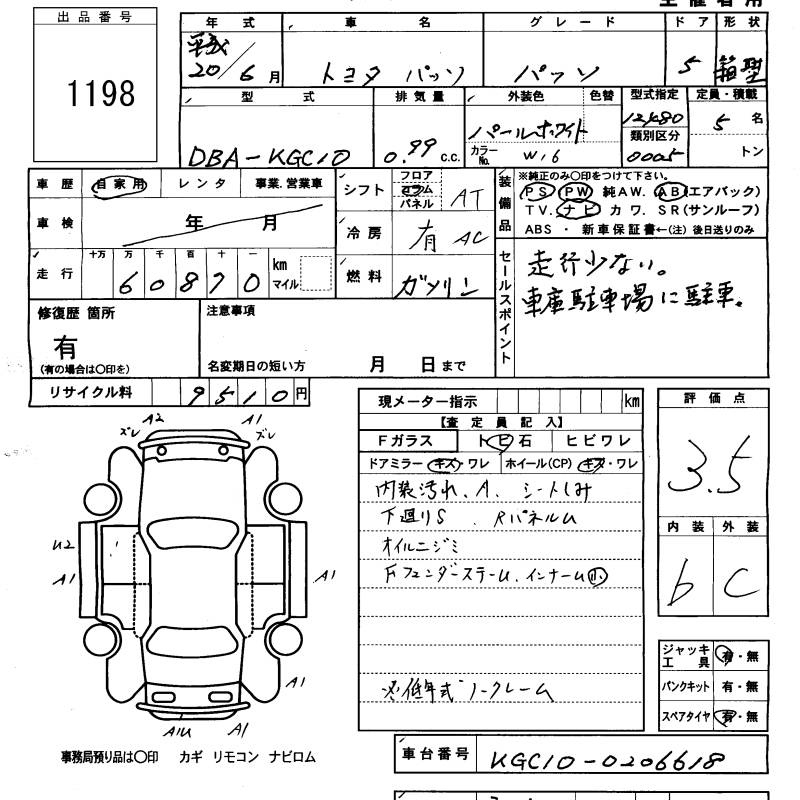 出品番号
1198
年式 車名 グレード ドア 形状
平成20/6月 トヨタ パッソ パッソ 5 箱型
型式 排気量 外装色 色替 型式指定 定員・積載
DBA-KGC10 0.99 c.c. パールホワイト 12480 5名
カラーNo. W16 類別区分 0005 トン
車歴 自家用 レンタ 事業.営業車
車検 年 月
走行 十万 万 千 百 十 一
60870 km マイル
シフト フロア コラム パネル AT
冷房 有 AC
燃料 ガソリン
装備品
※純正のみ○印をつけて下さい。
PS PW 純AW. AB(エアバック)
TV. ナビ カワ. SR(サンルーフ)
ABS ・ 新車保証書←(注) 後日送りのみ
セールスポイント
走行少ない。
車庫駐車場に駐車。
修復歴 箇所
有
(有の場合は○印を)
注意事項
名変期日の短い方 月 日まで
リサイクル料 9510円
現メーター指示 km
【査定員記入】
Fガラス トビ石 ヒビワレ
ドアミラー キズ・ワレ ホイール(CP) キズ・ワレ
内装汚れ、A、シートしみ
下廻りS 、RパネルU
オイルニジミ
FフェンダーステーU、インナーU小
※低年式ノークレーム
評価点
3.5
内装 外装
b C
ジャッキ工具 有・無
パンクキット 有・無
スペアタイヤ 有・無
A2 ズレ
A1 ズレ
U2
A1
A1
A1
A1U
A1
事務局預り品は○印 カギ リモコン ナビロム
車台番号 KGC10-0206618